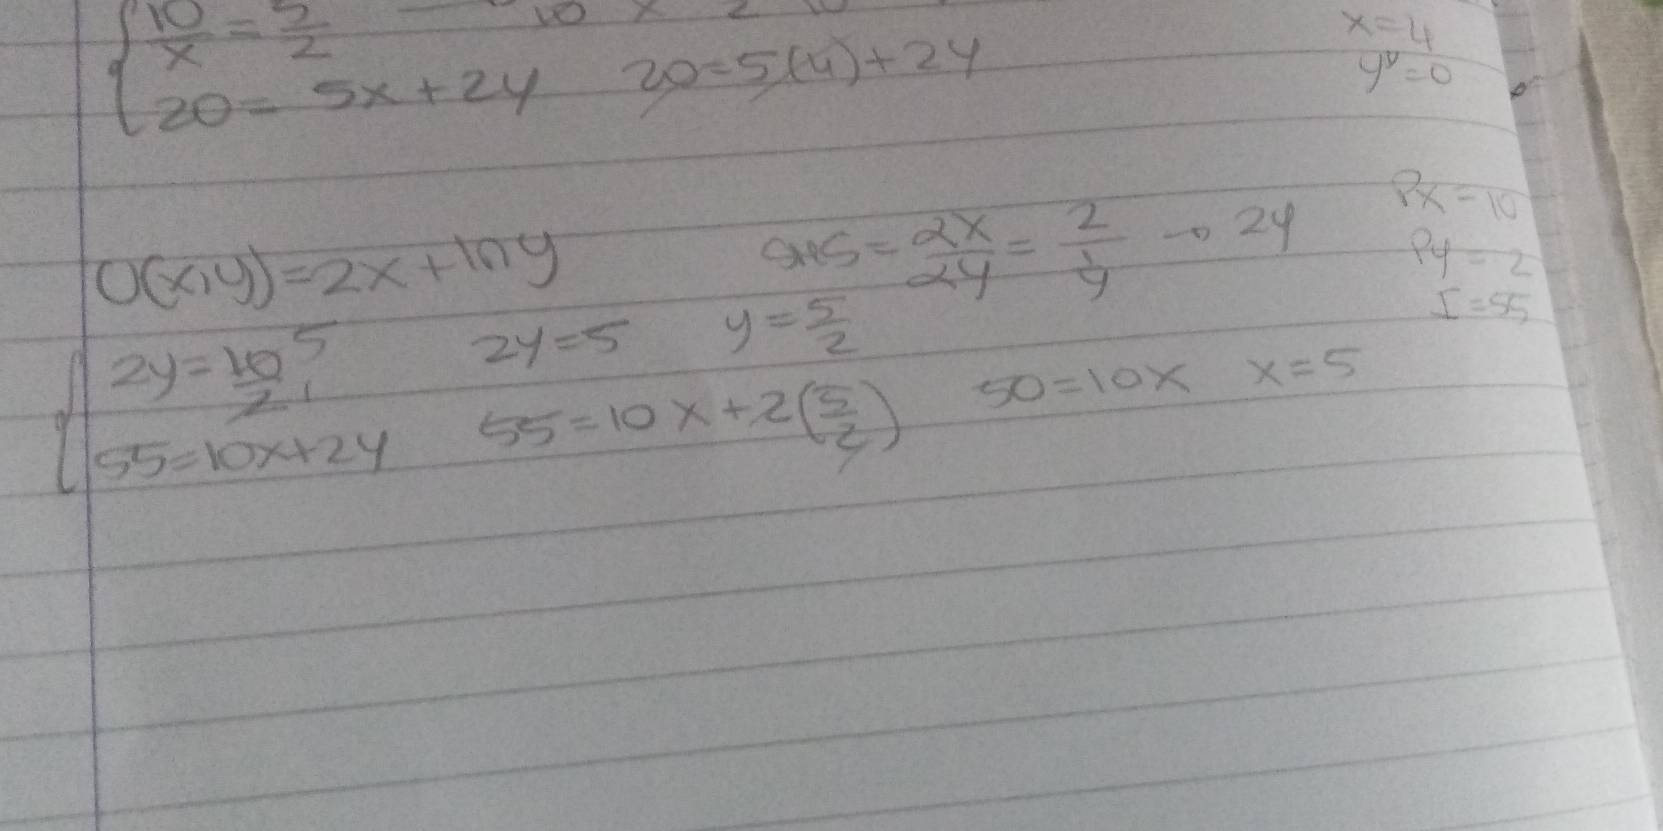 {10/x = 5/2
20 = 5x + 2y 20 = 5(4) + 2y x = 4
y = 0
U(x,y) = 2x + ln y SMS = 2x/2y = 2/(1/y) → 2y Px = 10
Py = 2
I = 55
{2y = 10/2 5 1 2y = 5 y = 5/2
55 = 10x + 2y 55 = 10x + 2(5/2) 50 = 10x x = 5